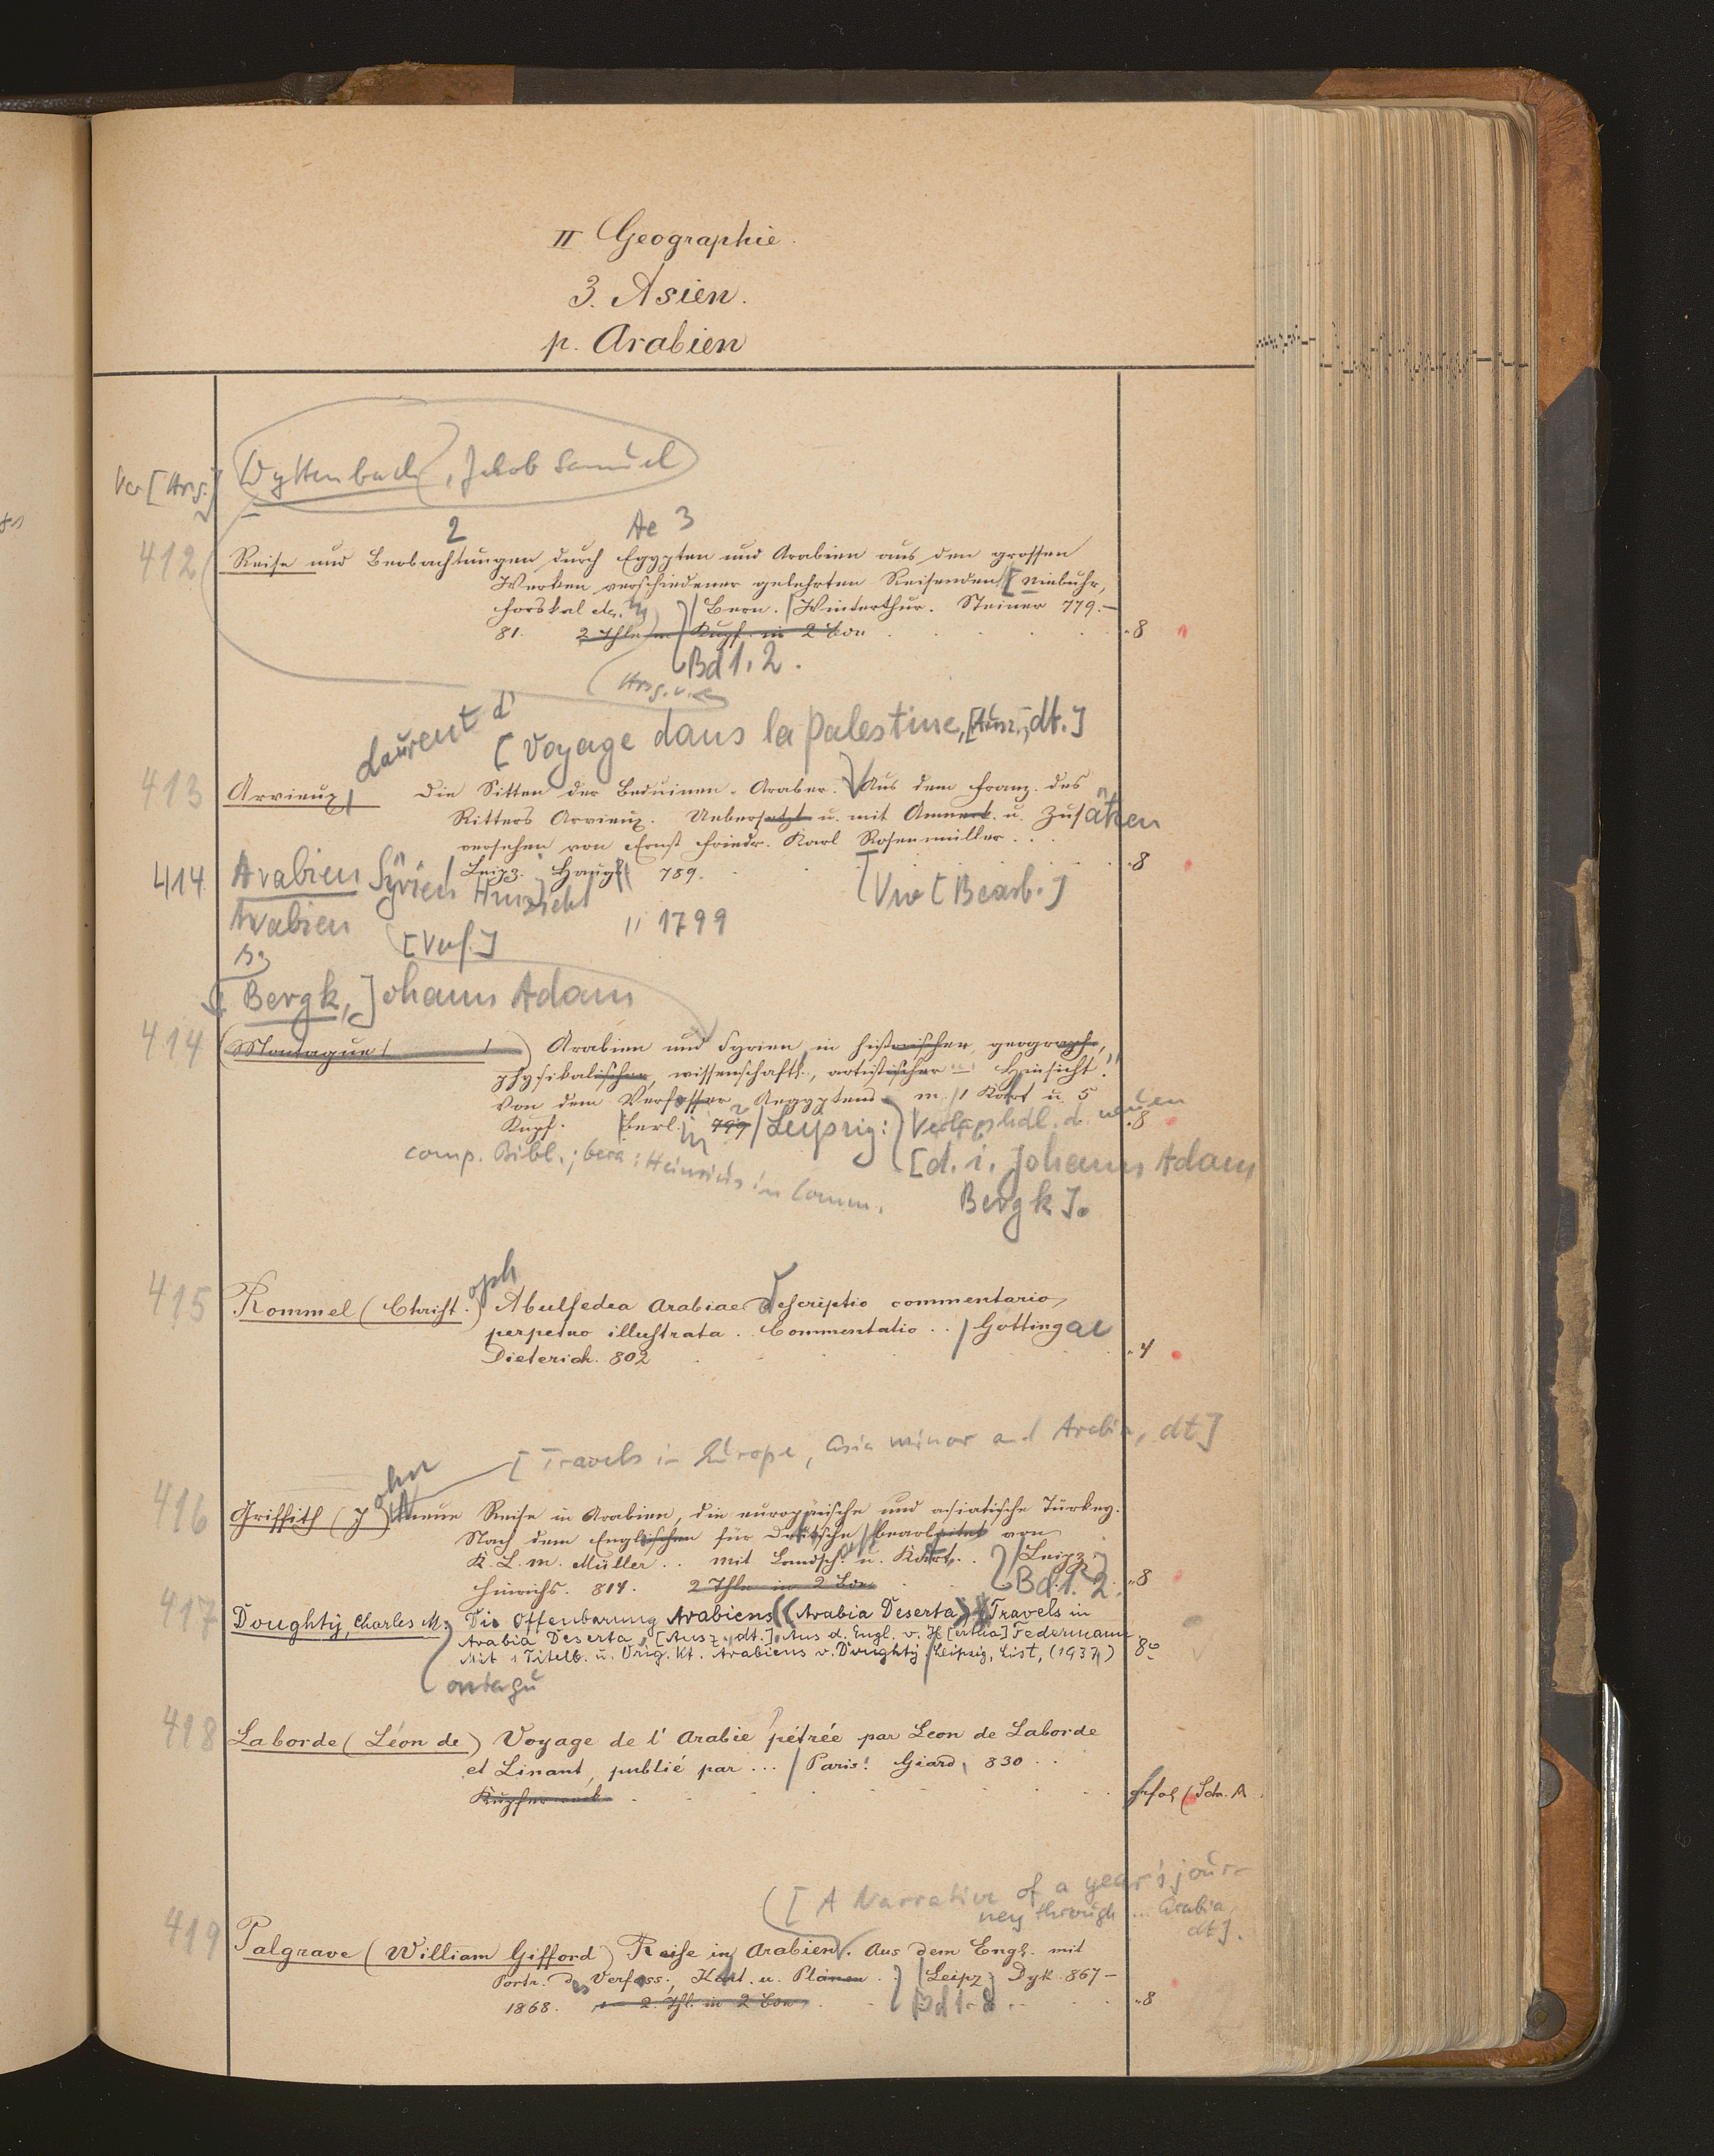 II Geographie.
3. Asien.
p. Arabien
Wyttenbach, Jakob Samuel
[Hrsg.]
2 Ae 3
412 Reise und Beobachtungen durch Egypten und Arabien aus den grossen
Werken verschiedener gelehrten Reisenden [Niebuhr,
Forskal etc. / Bern. / Winterthur. Steiner 779.–
81. 2 Thle m Kupf. in 2 Bdn 8
Bd 1. 2.
Hrsg. v.
Laurent d'
[Voyage dans la Palestine, [Ausz., dt.]
413 Arvieux, Die Sitten der Beduinen-Araber. Aus dem Franz. des
Ritters Arvieux. Uebersetzt u. mit Anmerk. u. Zusätzen
versehen von Ernst Friedr. Karl Rosenmüller . . .
Leipz. 789. 8
414 Arabien Syrien Hinsicht
[Bearb.]
Arabien 1799
[Verf.]
Bergk, Johann Adam
414 (Montague) Arabien und Syrien in historischer, geograph.,
physikalischer, wissenschaftl., artistischer – Hinsicht.
Von dem Verfasser Aegyptens m. 1 Kart u. 5
Kupf. Berl. 799 / Leipzig: Verlagshdl. d. neuen 8
comp. Bibl.; Hinrichs in Comm.
[d. i. Johann Adam
Bergk].
oph
415 Rommel (Christ.) Abulfedea Arabiae descriptio commentario
perpetuo illustrata . . Commentatio . . / Gottingae
Dieterich. 802 4
[Travels in Europe, Asia minor and Arabia, dt]
ohn
416 Griffith (J) neue Reise in Arabien, die europäische und asiatische Türkey.
Nach dem Englischen für Deutsche bearbeitet von
K. L. M. Müller . . mit Landsch. u. Kart. . . / Leipz.
Hinrichs. 814. 2 Thle in 2 Bdn Bd 1. 2. 8
417 Doughty, Charles M: Die Offenbarung Arabiens (Arabia Deserta) Travels in
Arabia Deserta, [Ausz., dt.] Aus d. Engl. v. H[ertha] Federmann
Mit 1 Titelb. u. Orig. Kt. Arabiens v. Doughty. / Leipzig, List, (1937) 8°
ontagu
418 Laborde (Léon de) Voyage de l'Arabie pétrée par Leon de Laborde
et Linant, publié par ... / Paris: Giard, 830 . .
[A Narrative of a year's jour-
ney through ... Arabia,
dt].
419 Palgrave (William Gifford) Reise in Arabien. Aus dem Engl. mit
Portr. des Verfass., Kart. u. Plänen . . / Leipz Dyk 867–
1868. 2 Thl. in 2 Bdn Bd 1. 2. 8